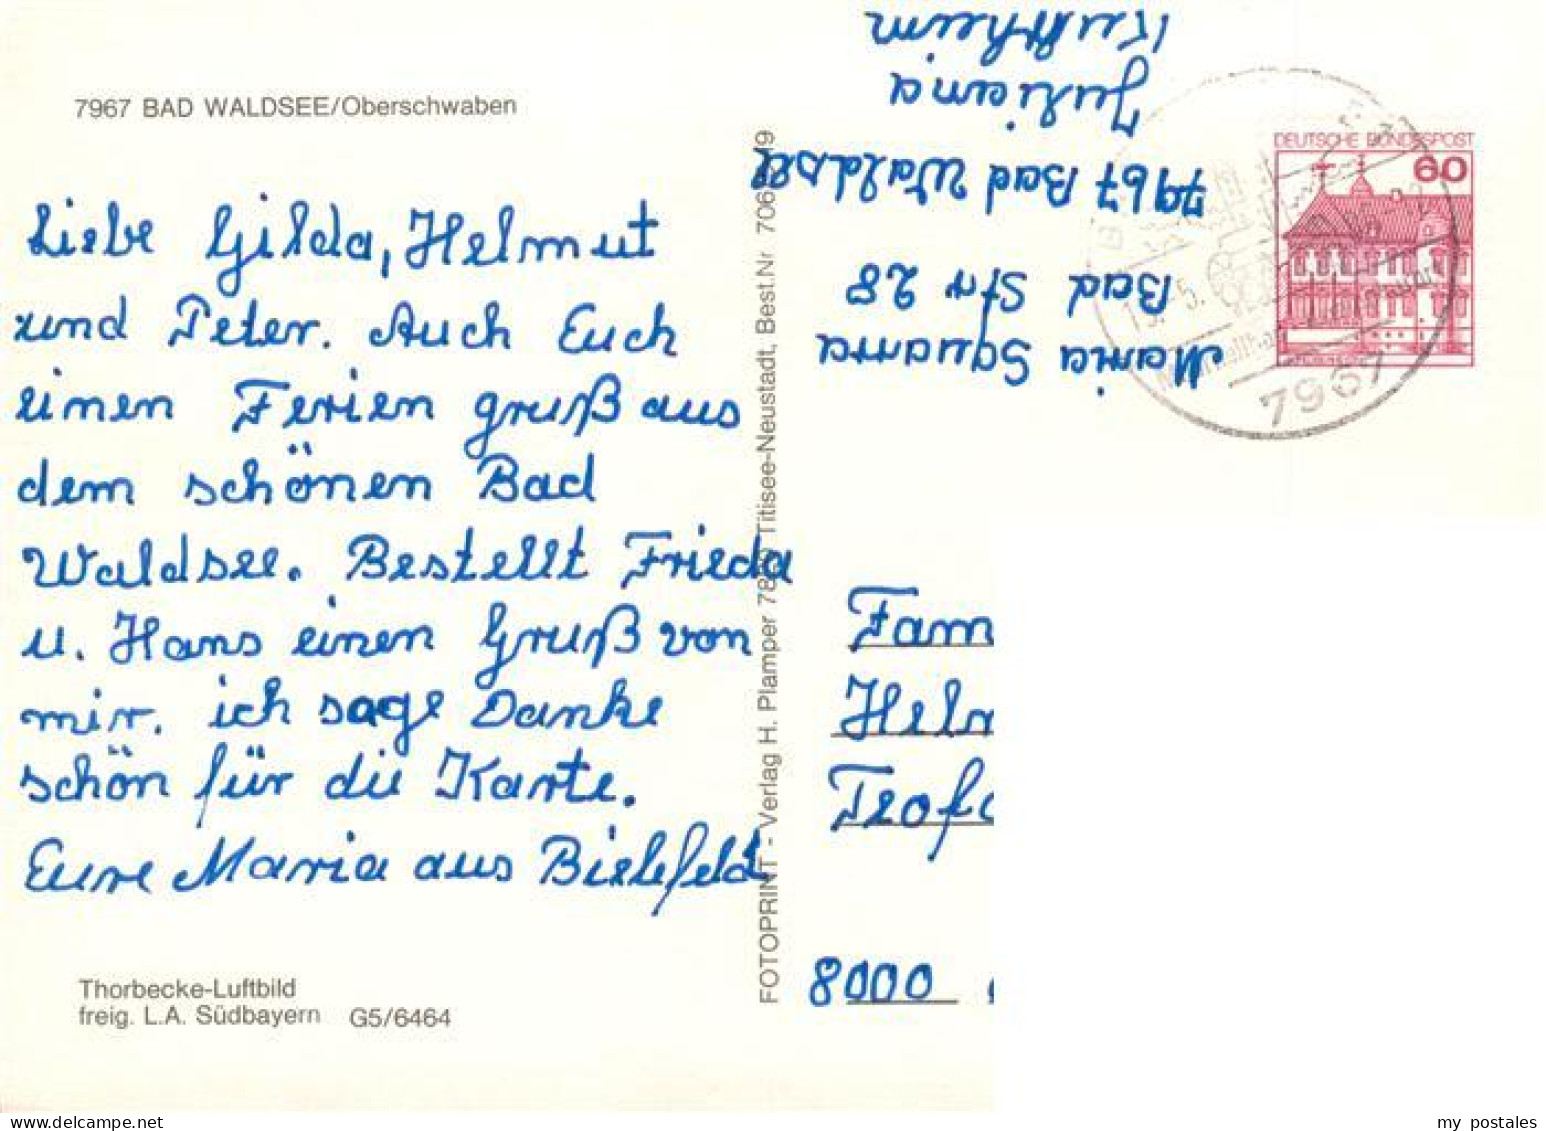 7967 BAD WALDSEE/Oberschwaben
Liebe Gilda, Helmut
und Peter. Auch Euch
einen Ferien gruß aus
dem schönen Bad
Waldsee. Bestellt Frieda
u. Hans einen Gruß von
mir. ich sage Danke
schön für die Karte.
Eure Maria aus Bielefeld
Thorbecke-Luftbild
freig. L.A. Südbayern G5/6464
FOTOPRINT - Verlag H. Plamper Titisee-Neustadt, Best.Nr
Maria Squarra
Bad Str 28
7967 Bad Waldsee
Juliana
heim
DEUTSCHE BUNDESPOST
60
7967
Fam
Hel
Trof
8000
my postales